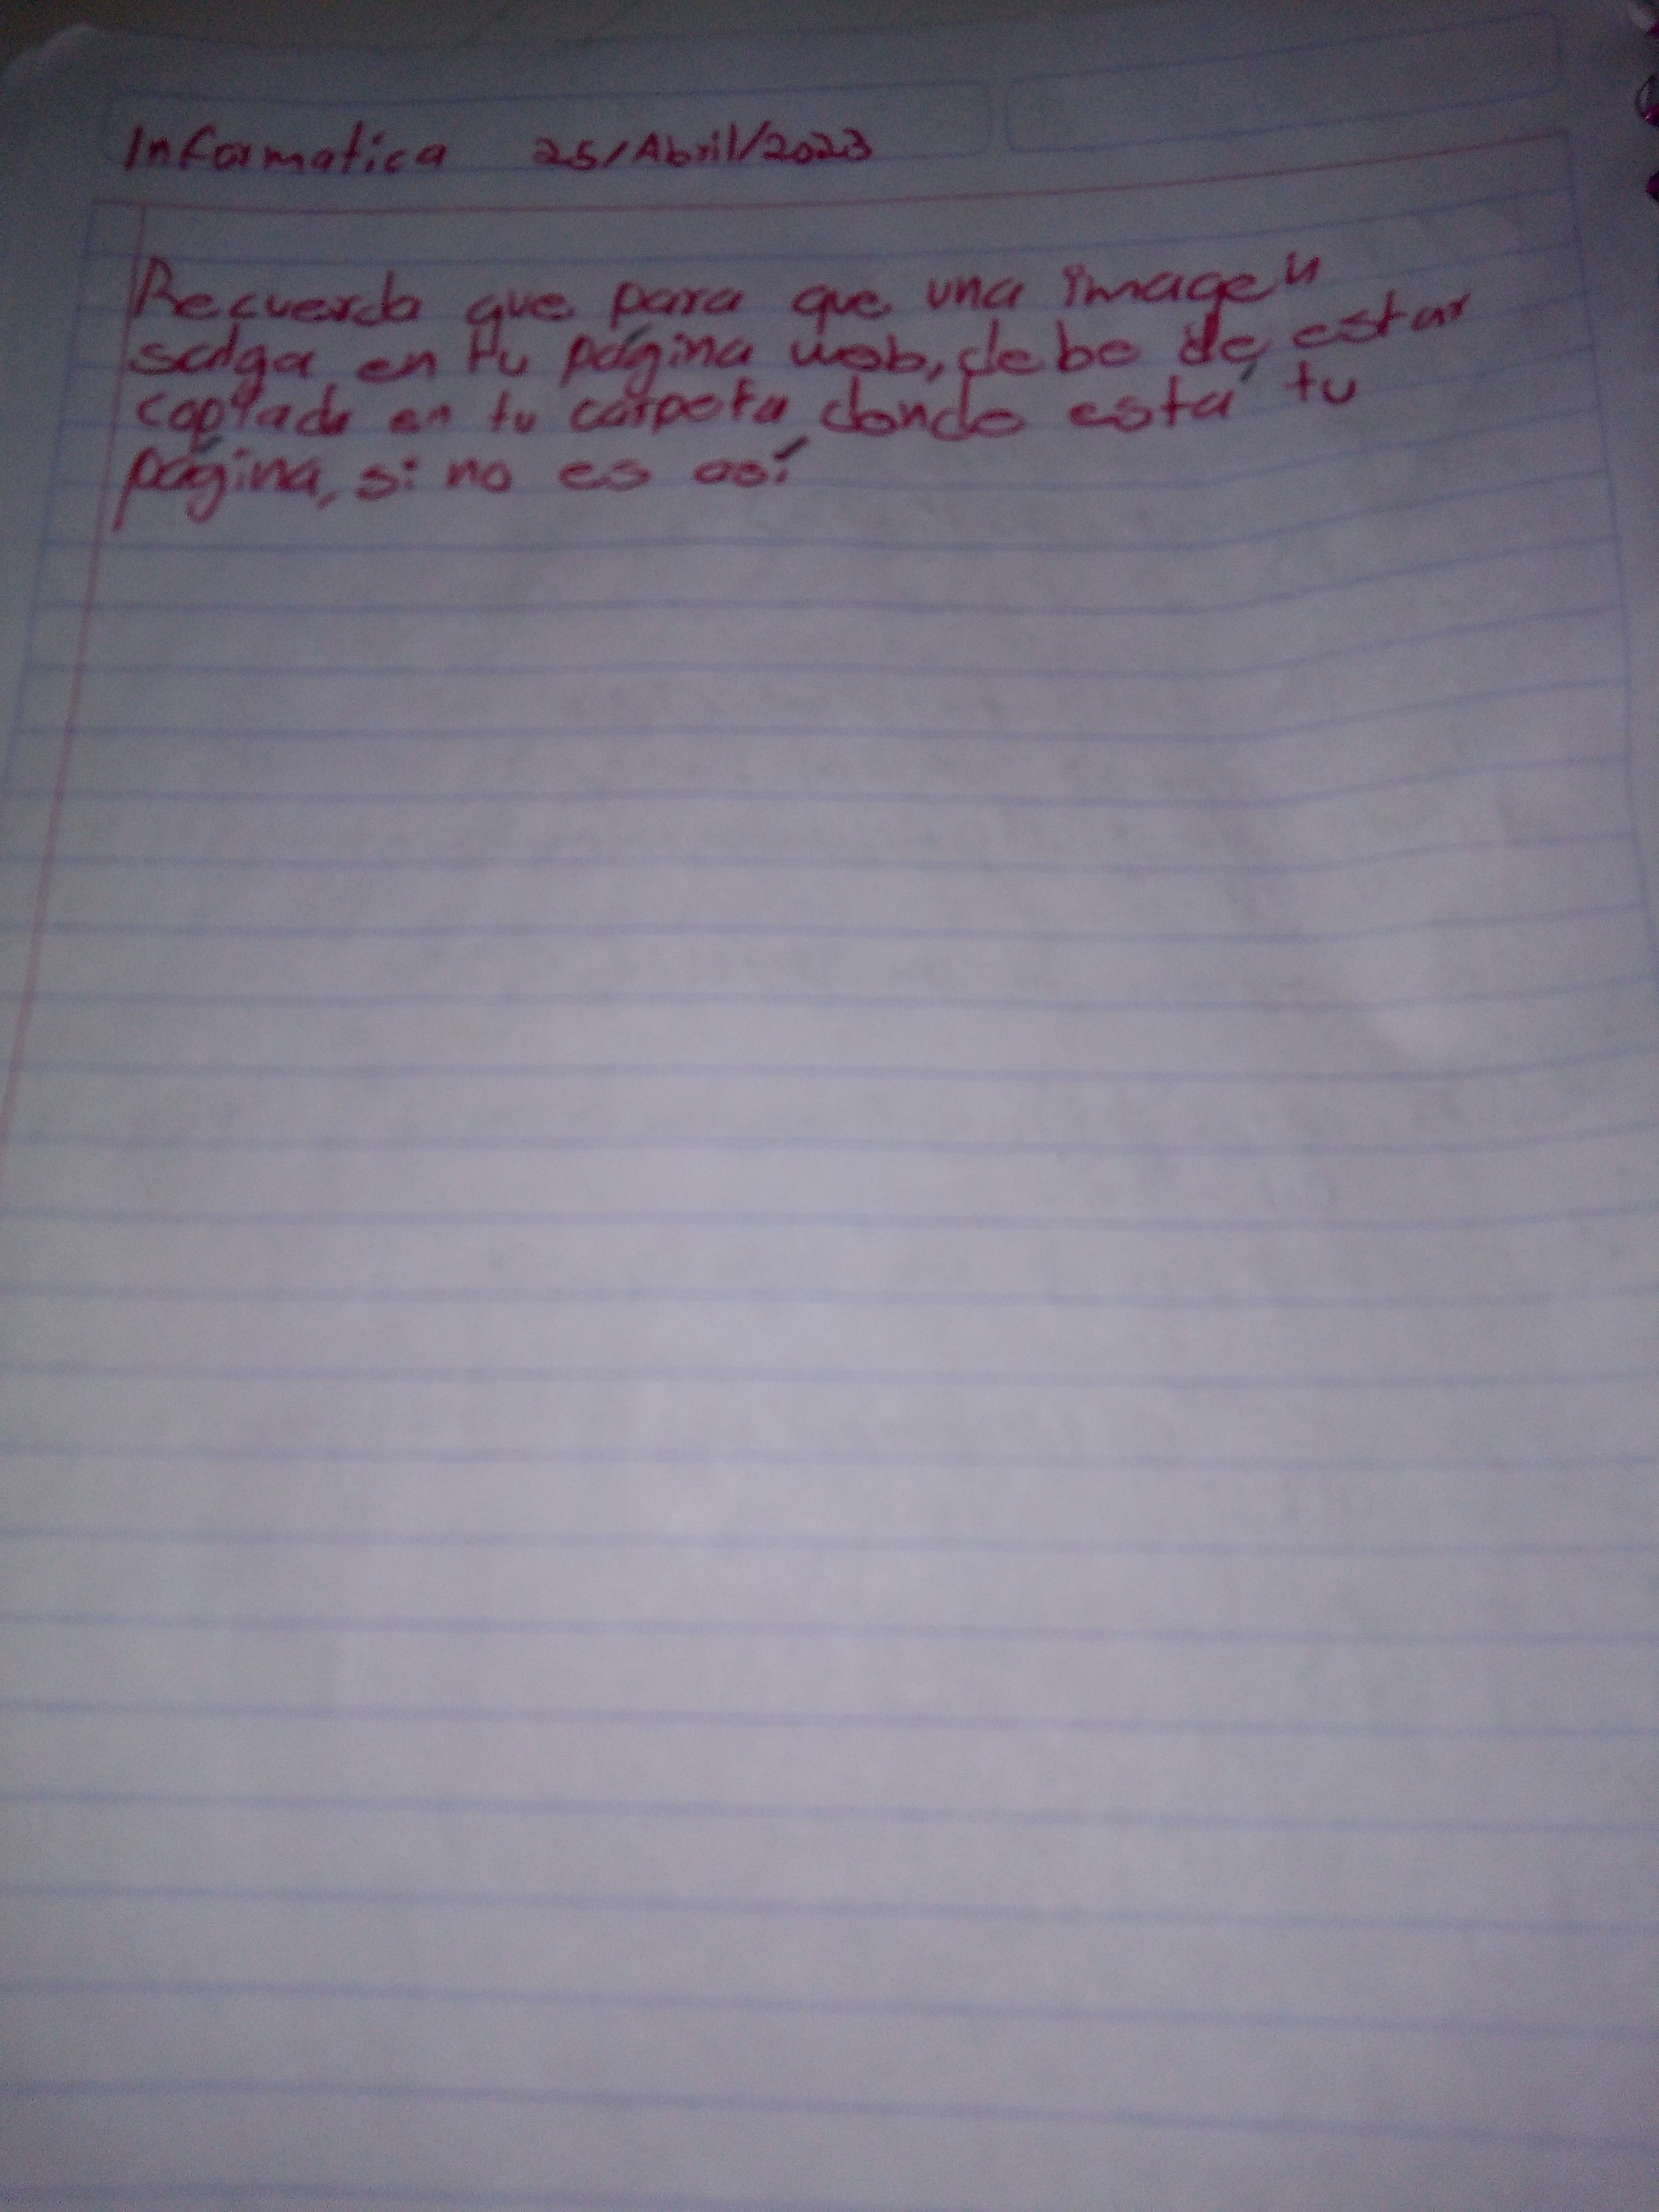 Informatica 25/Abril/2023
Recuerda que para que una imagen
salga en tu página web, debe de estar
copiada en tu carpeta donde está tu
página, si no es así